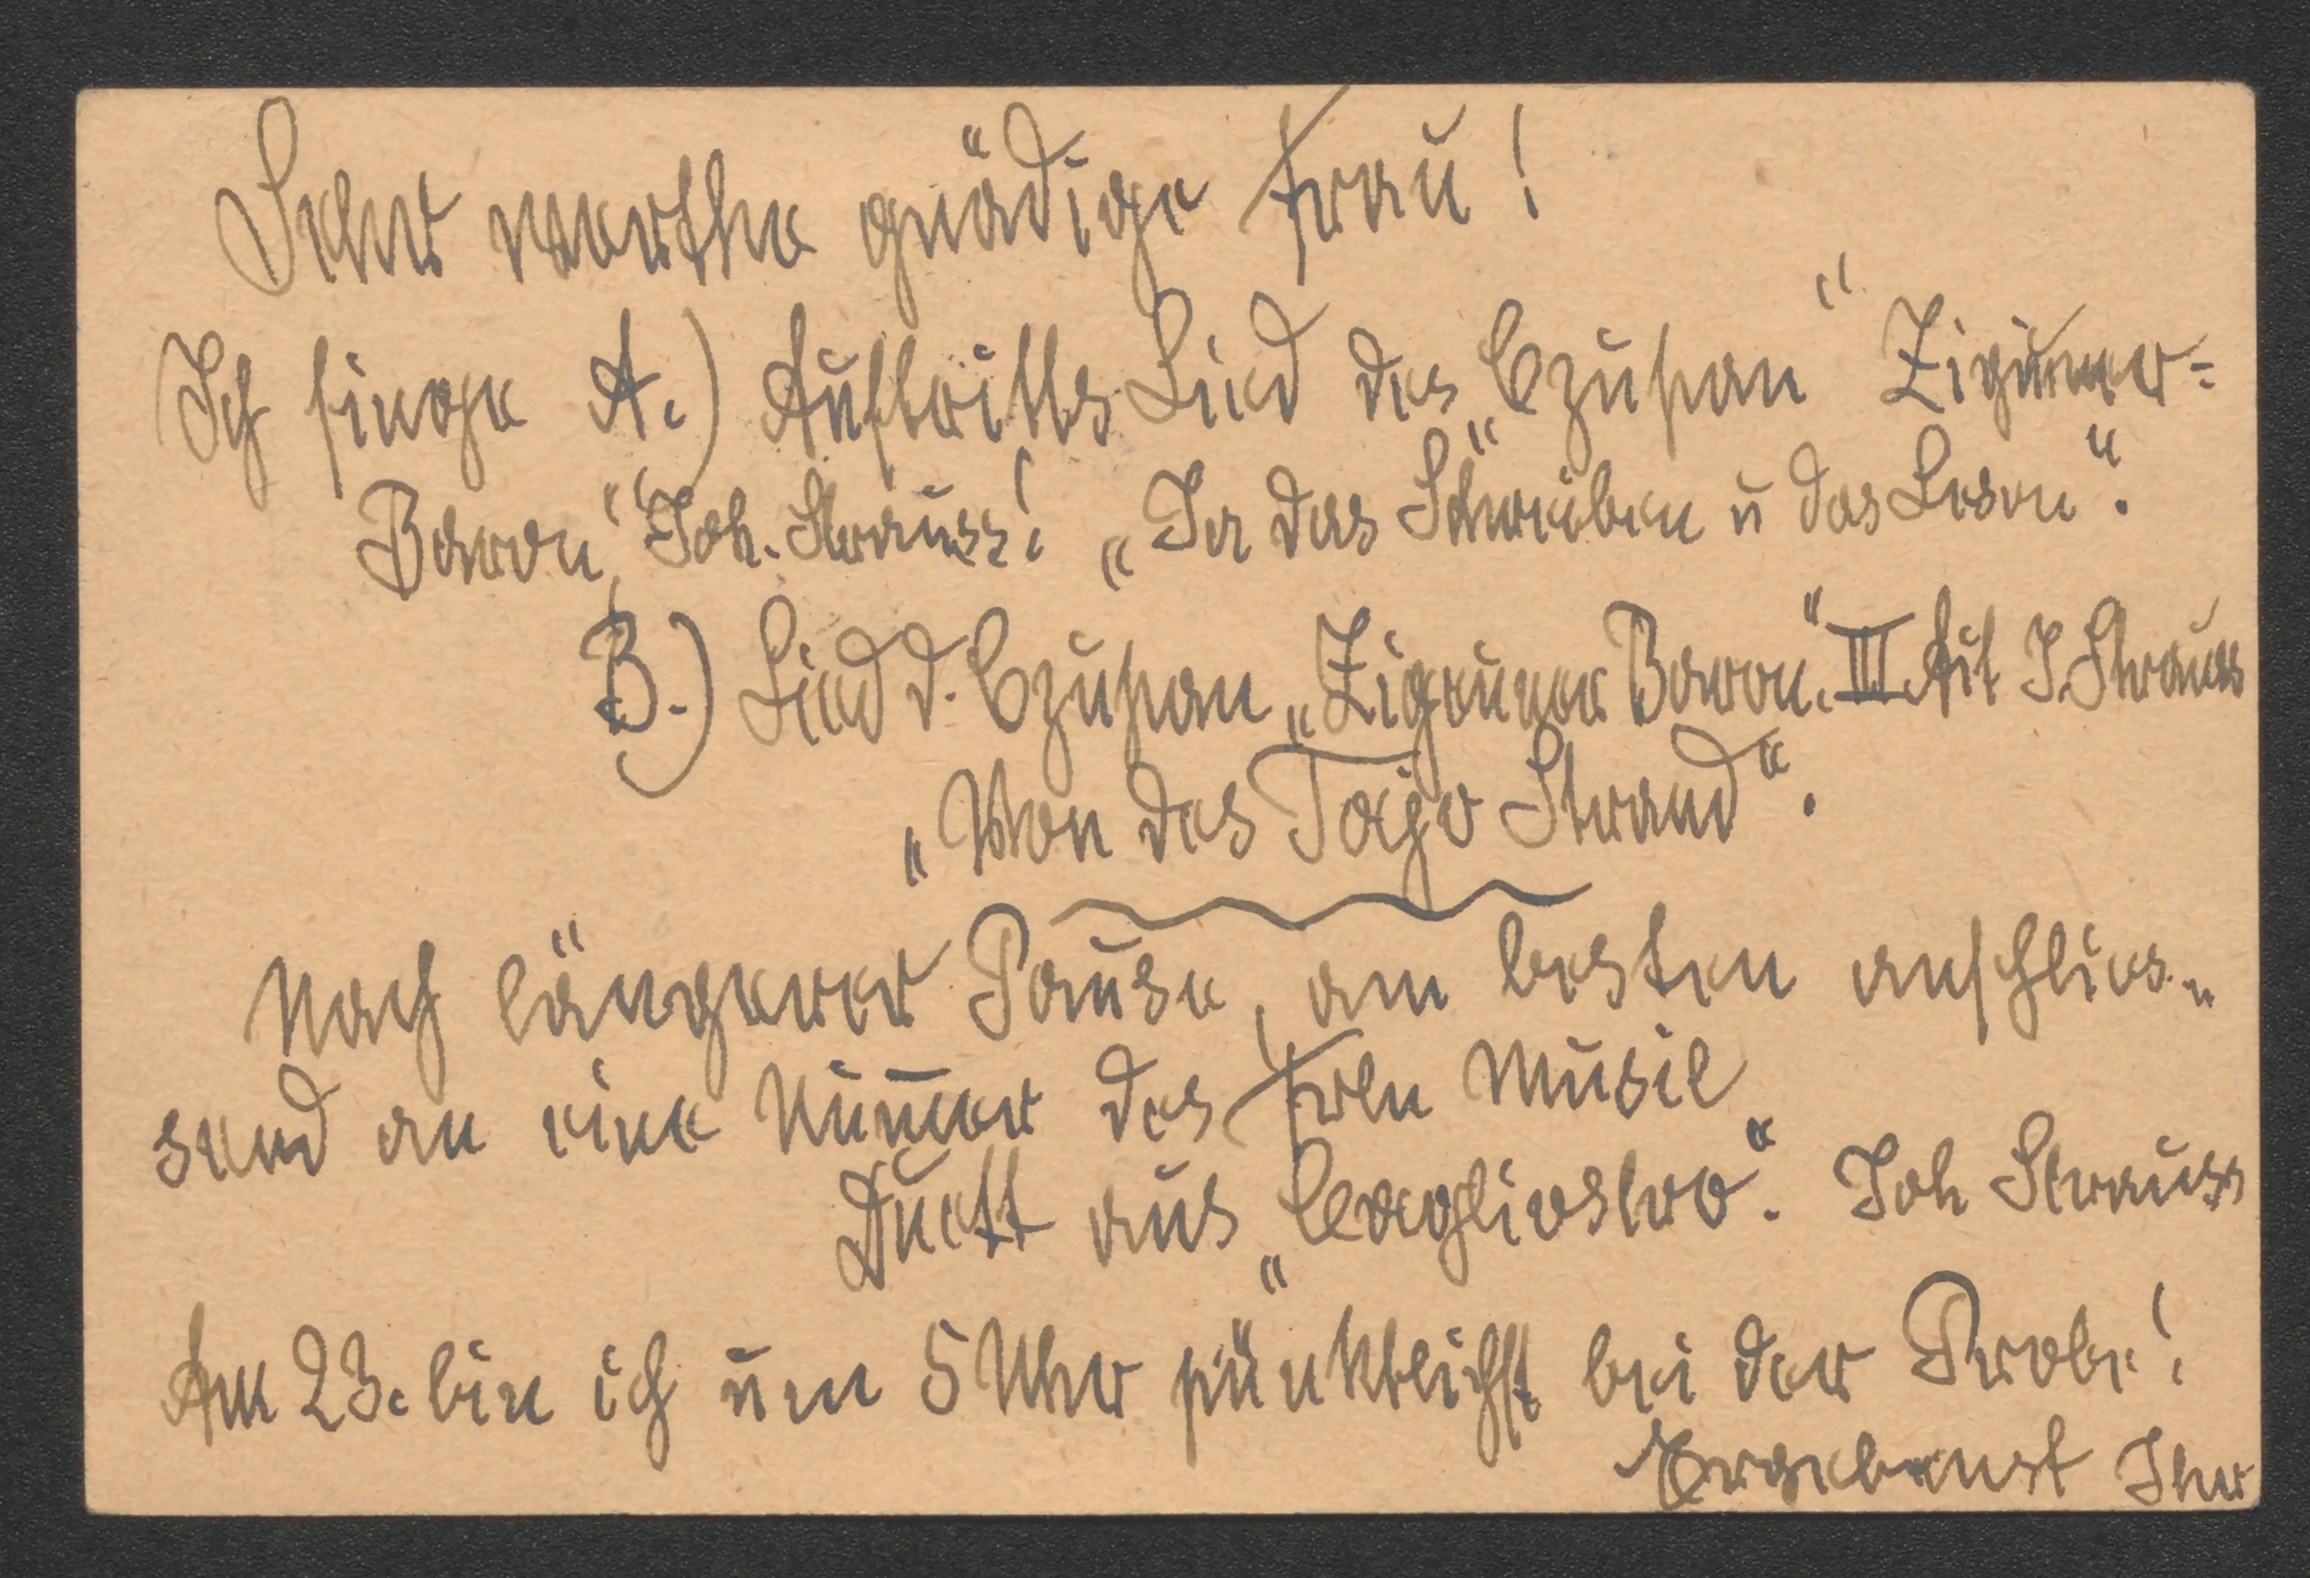 Sehr werthe gnädige Frau!
Ich singe A.) Auftritts Lied des „Czupan" Zigeuner=
Baron" Joh. Strauss! „Ja das Schreiben u das Lesen".
B.) Lied d. Czupan „Zigeuner Baron". III Akt J. Strauss
„Von des Tajo Strand".
Nach längerer Pause, am besten anschlies-
send an eine Nummer des Frln Musil
Duett aus „Cagliostro". Joh Strauss
Am 23. bin ich um 5 Uhr pünktlichst bei der Probe!
Ergebenst Ihr